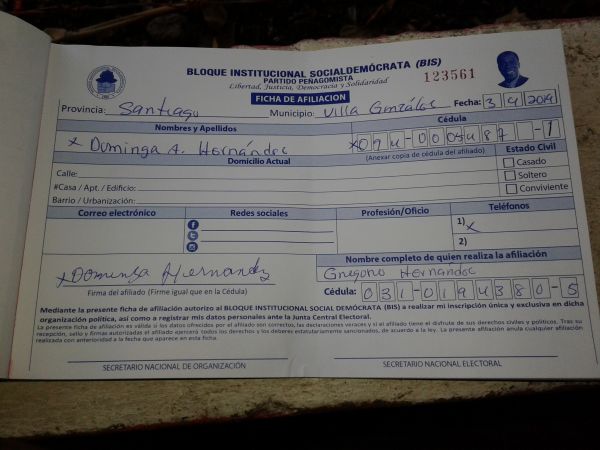 BLOQUE INSTITUCIONAL SOCIALDEMÓCRATA (BIS)
PARTIDO PEÑAGOMISTA
Libertad, Justicia, Democracia y Solidaridad
123561
FICHA DE AFILIACION
Provincia: Santiago Municipio: Villa González Fecha: 3 4 2019
Nombres y Apellidos Cédula
x Duminga A. Hernández x094-0005487-1
(Anexar copia de cédula del afiliado)
Domicilio Actual Estado Civil
Calle: Casado
#Casa / Apt. / Edificio: Soltero
Barrio / Urbanización: Conviviente
Correo electrónico Redes sociales Profesión/Oficio Teléfonos
1) x
2)
Nombre completo de quien realiza la afiliación
x Dominga Hernandez Gregorio Hernández
Firma del afiliado (Firme igual que en la Cédula) Cédula: 031-0194380-5
Mediante la presente ficha de afiliación autorizo al BLOQUE INSTITUCIONAL SOCIAL DEMÓCRATA (BIS) a realizar mi inscripción única y exclusiva en dicha
organización política, así como a registrar mis datos personales ante la Junta Central Electoral.
La presente ficha de afiliación es válida si los datos ofrecidos por el afiliado son correctos, las declaraciones veraces y si el afiliado tiene el disfrute de sus derechos civiles y políticos. Tras su
recepción, sello y firmas autorizadas el afiliado ejercerá todos los derechos y los deberes estatutariamente sancionados, de acuerdo a la ley. La presente afiliación anula cualquier afiliación
realizada con anterioridad a la fecha que aparece en esta ficha.
SECRETARIO NACIONAL DE ORGANIZACIÓN SECRETARIO NACIONAL ELECTORAL